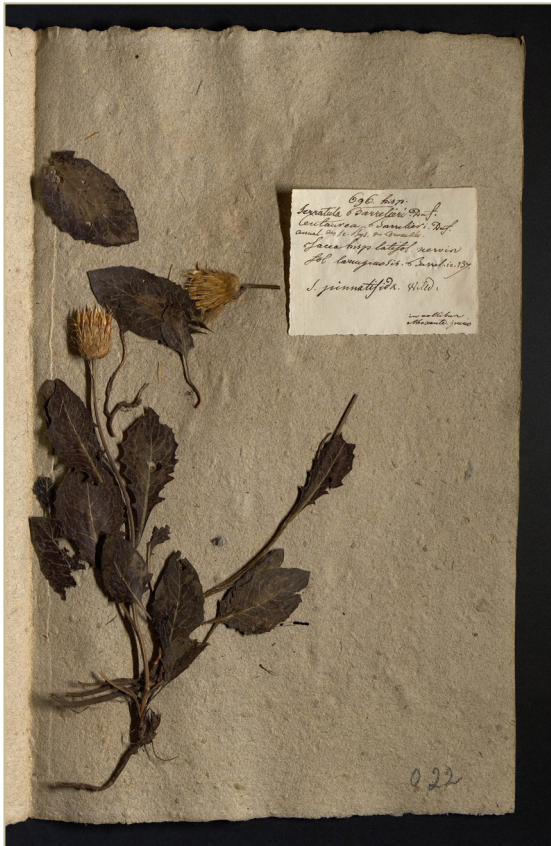 696. hisp.
Serratula Barrelieri. Duf.
Centaurea Barrelieri. Duf.
annal. des sc. phys. de Bruxelles
Jacea hisp. latifol. nervis
fol. lanuginosis. Barrel. ic. 137
S. pinnatifida. Willd.
in collibus
022